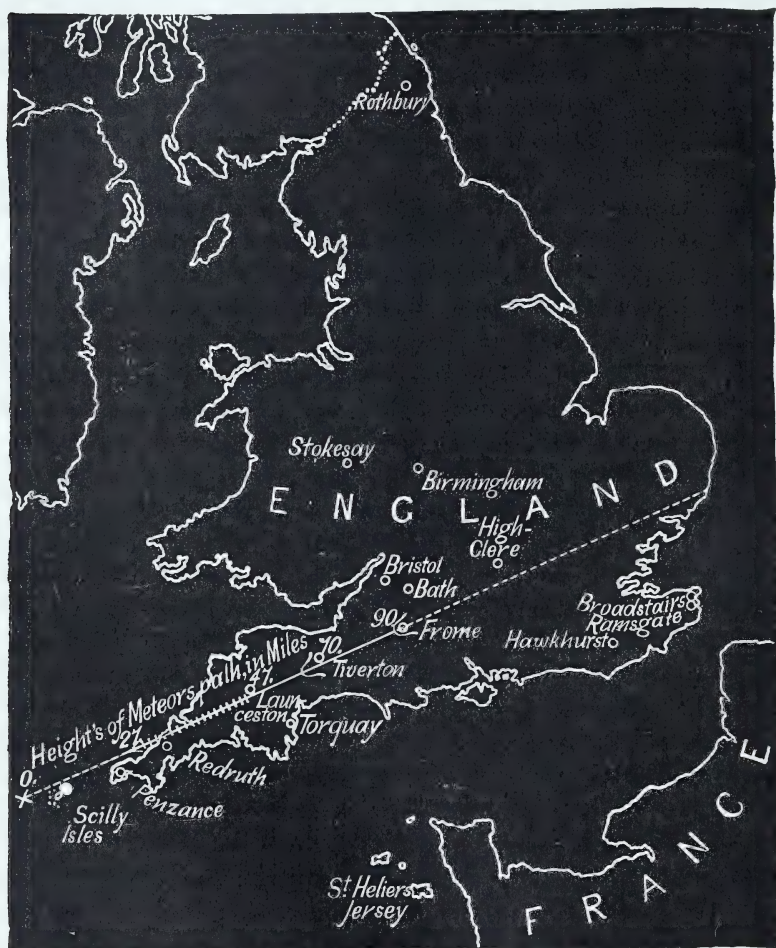 Rothbury
Stokesay
Birmingham
ENGLAND
High-
Clere
Bristol
Bath
Broadstairs
Ramsgate
90
Frome
Hawkhurst
70.
Tiverton
Height's of Meteors path, in Miles
47.
Laun
ceston
Torquay
27.
Redruth
0.
Penzance
Scilly
Isles
St Heliers
Jersey
FRANCE